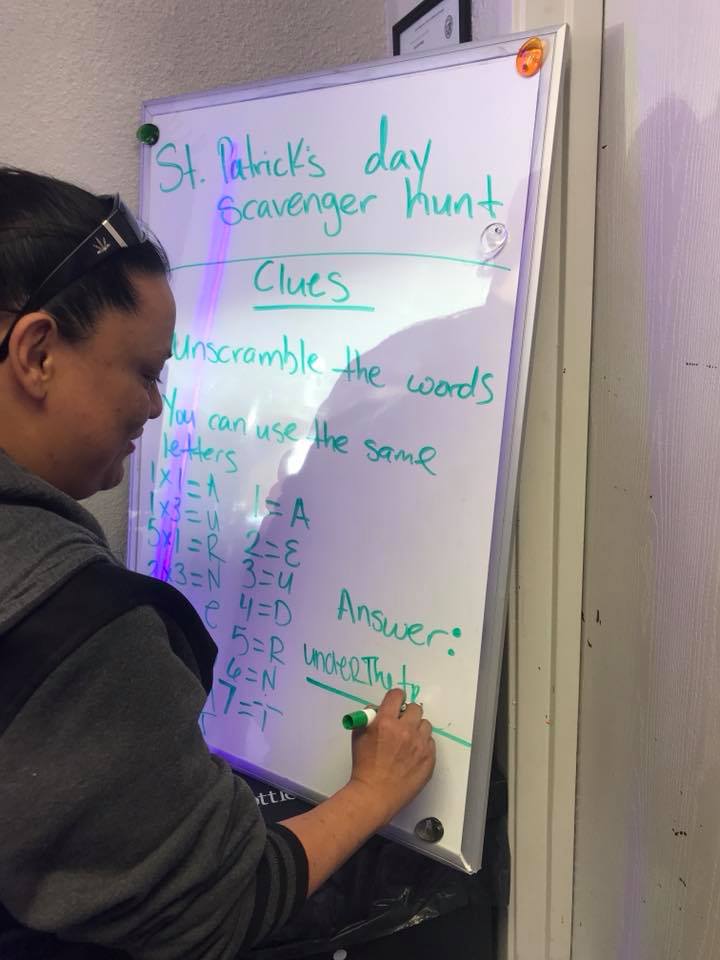 St. Patrick's day
scavenger hunt
Clues
unscramble the words
You can use the same
letters
1x1=A
1x3=u
5x1=R
2x3=N
e
1=A
2=E
3=u
4=D
5=R
6=N
7=T
Answer:
underThetr
ottle